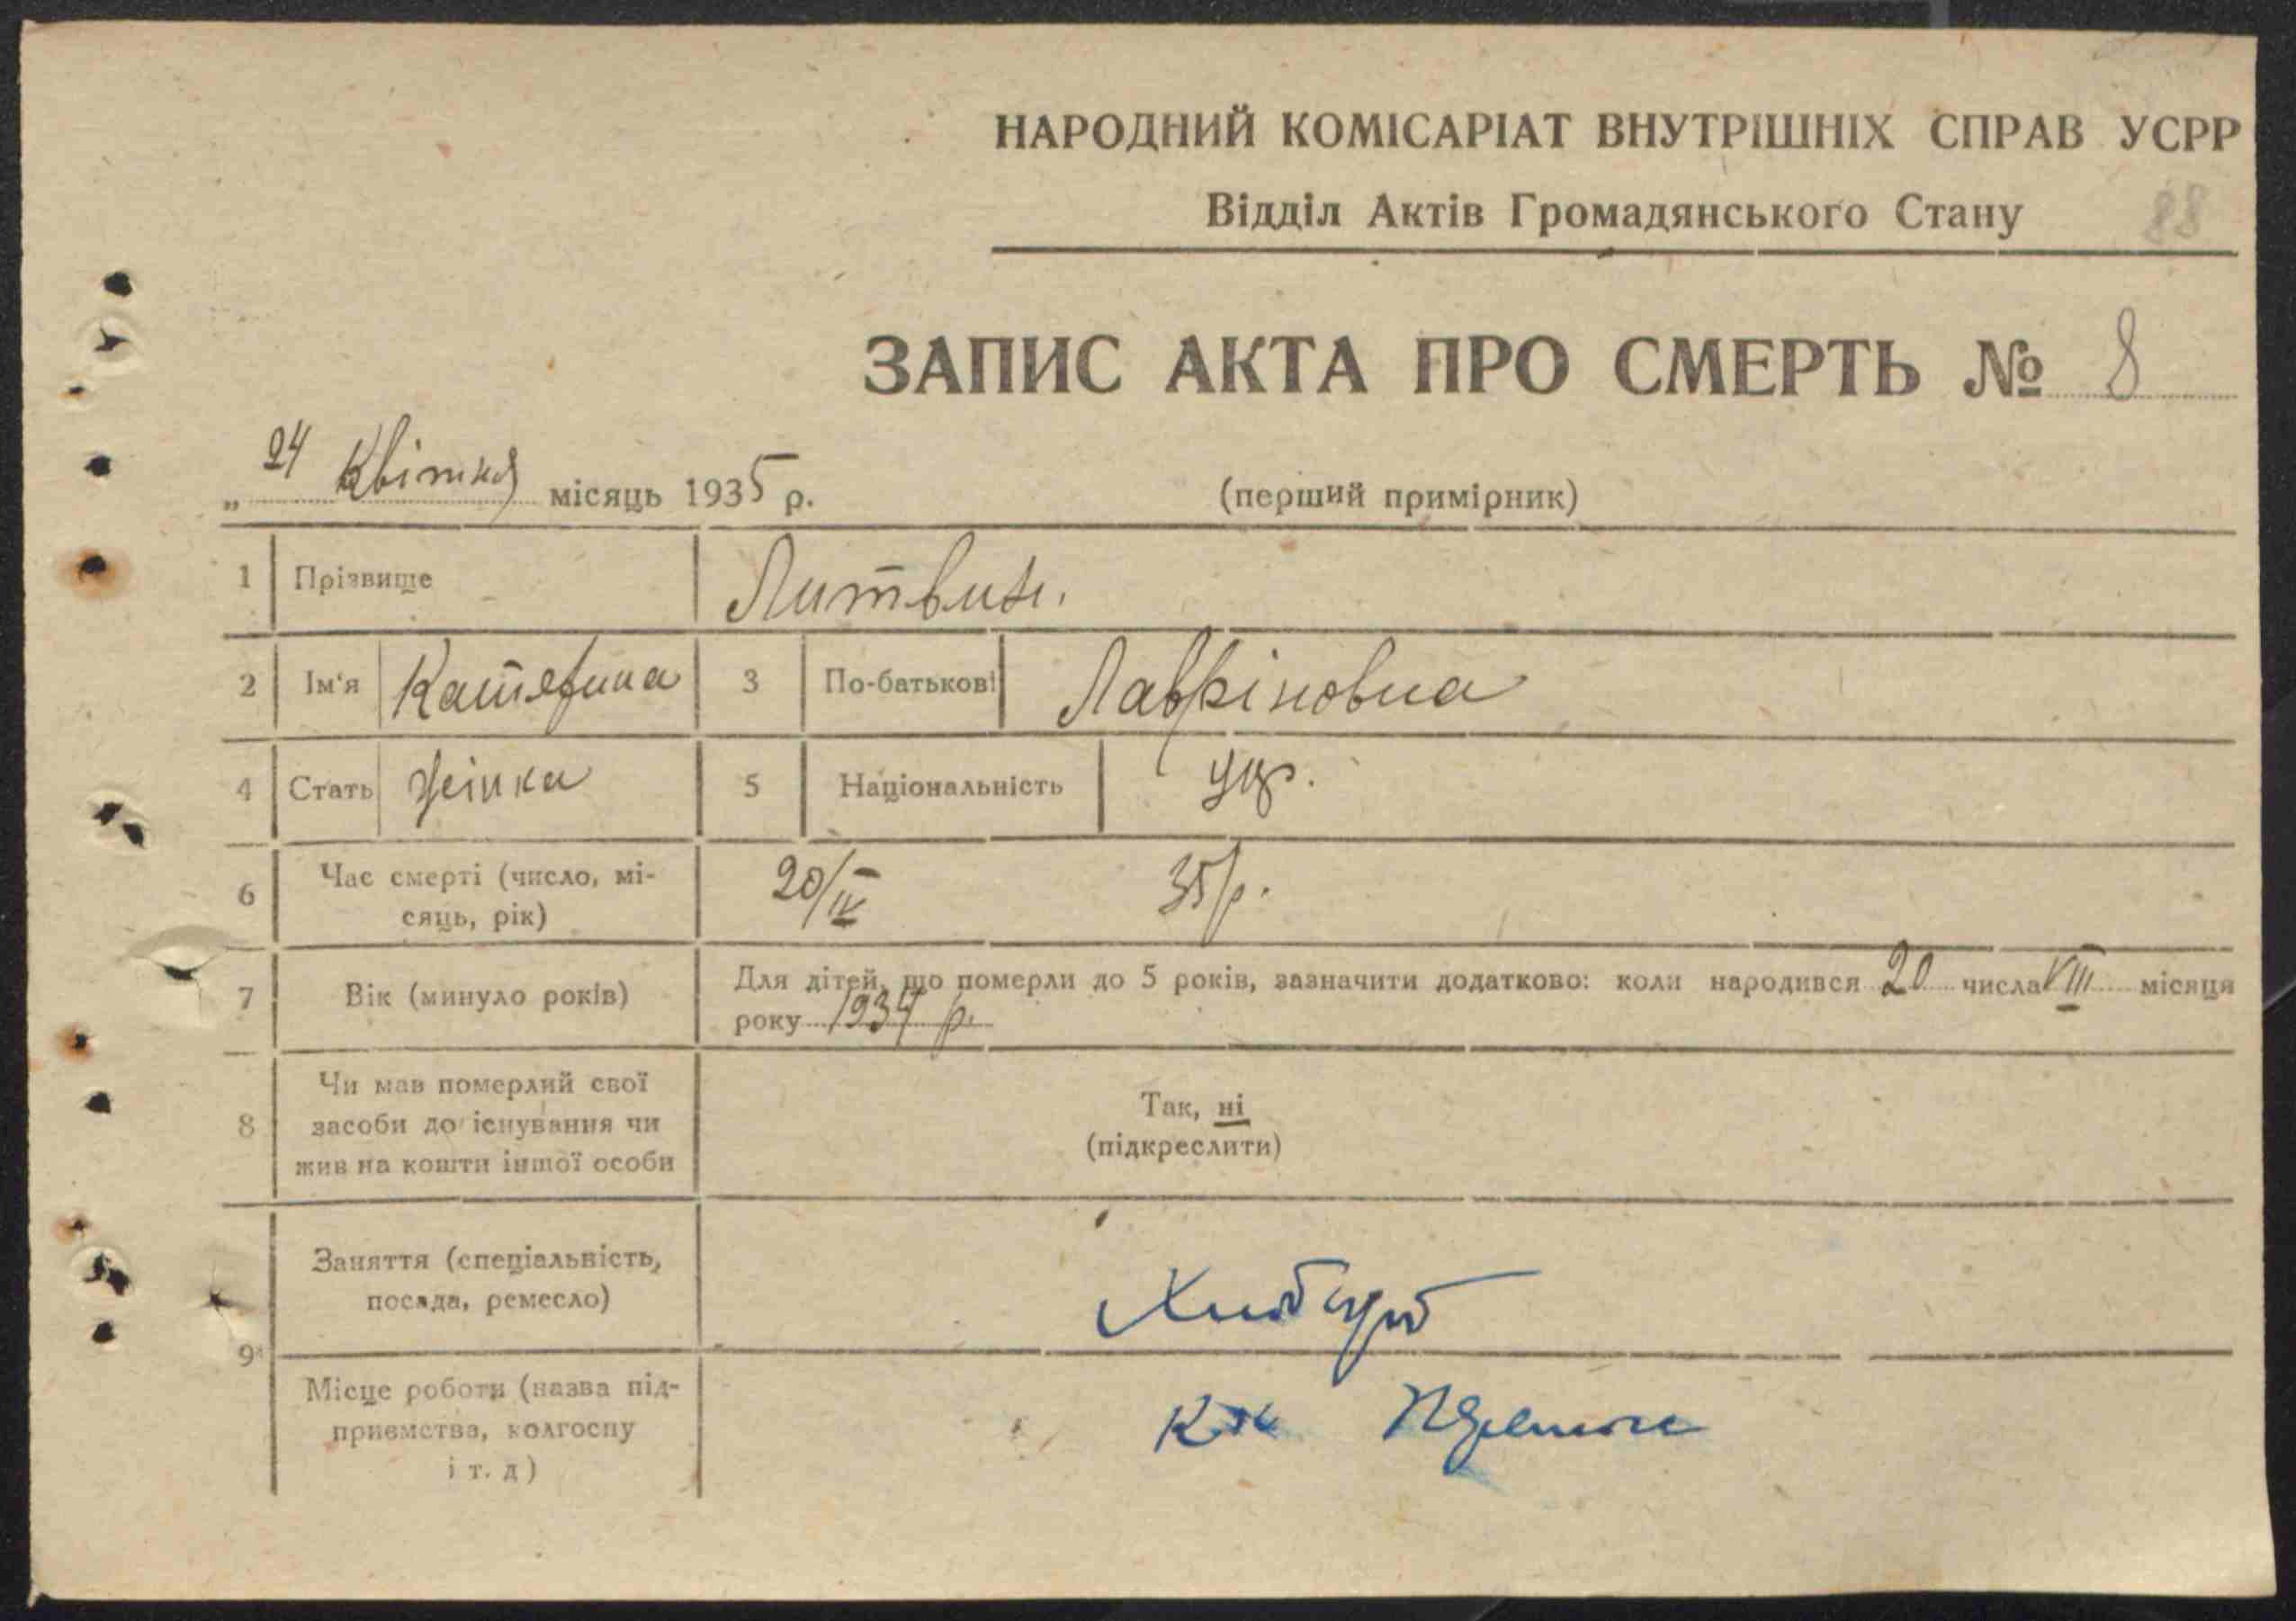 НАРОДНИЙ КОМІСАРІАТ ВНУТРІШНІХ СПРАВ УСРР
Відділ Актів Громадянського Стану 88
ЗАПИС АКТА ПРО СМЕРТЬ № 8
„ 24 Квітня місяць 1935 р. (перший примірник)
1 Прізвище Литвин.
2 Ім'я Катерина 3 По-батькові Лавріновна
4 Стать жінка 5 Національність укр.
6 Час смерті (число, мі-
сяць, рік) 20/IV 35 р.
7 Вік (минуло років) Для дітей, що померли до 5 років, зазначити додатково: коли народився 20 числа VIII місяця
року 1934 р.
8 Чи мав померлий свої
засоби до існування чи
жив на кошти іншої особи
Так, ні
(підкреслити)
9 Заняття (спеціальність,
посада, ремесло) Хлібороб
Місце роботи (назва під-
приємства, колгоспу
і т. д)